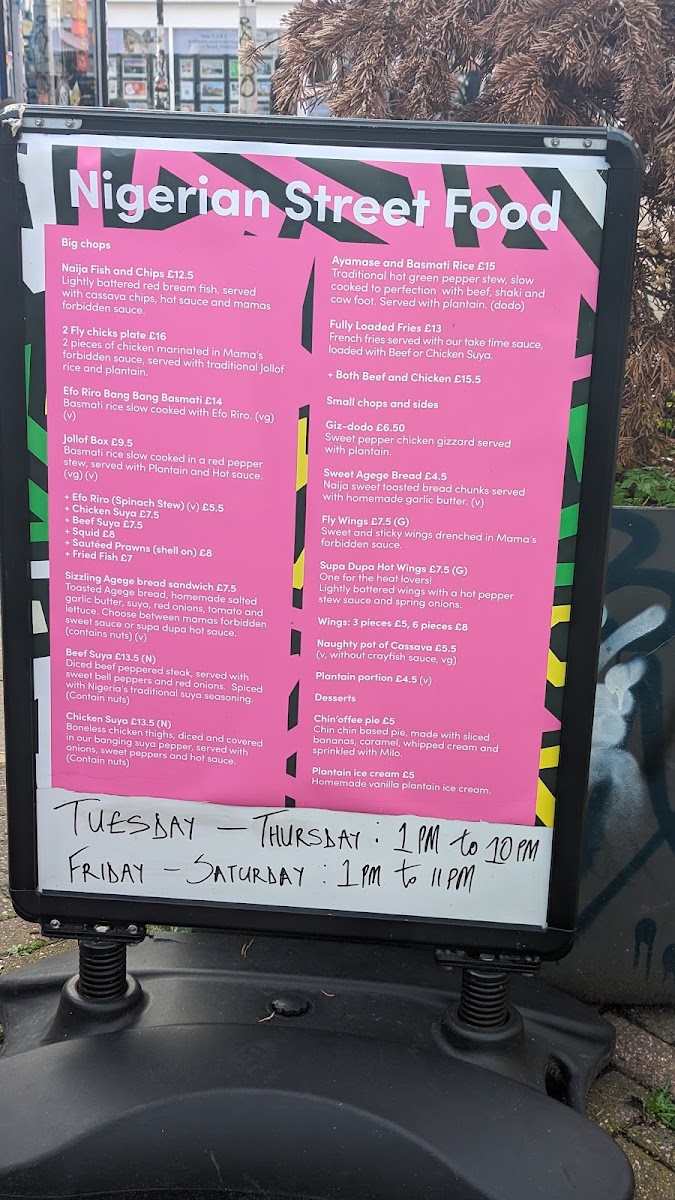 Nigerian Street Food
Big chops
Naija Fish and Chips £12.5
Lightly battered red bream fish, served
with cassava chips, hot sauce and mamas
forbidden sauce.
2 Fly chicks plate £16
2 pieces of chicken marinated in Mama's
forbidden sauce, served with traditional Jollof
rice and plantain.
Efo Riro Bang Bang Basmati £14
Basmati rice slow cooked with Efo Riro. (vg)
(v)
Jollof Box £9.5
Basmati rice slow cooked in a red pepper
stew, served with Plantain and Hot sauce.
(vg) (v)
+ Efo Riro (Spinach Stew) (v) £5.5
+ Chicken Suya £7.5
+ Beef Suya £7.5
+ Squid £8
+ Sautéed Prawns (shell on) £8
+ Fried Fish £7
Sizzling Agege bread sandwich £7.5
Toasted Agege bread, homemade salted
garlic butter, suya, red onions, tomato and
lettuce. Choose between mamas forbidden
sweet sauce or supa dupa hot sauce.
(contains nuts) (v)
Beef Suya £13.5 (N)
Diced beef peppered steak, served with
sweet bell peppers and red onions. Spiced
with Nigeria's traditional suya seasoning.
(Contain nuts)
Chicken Suya £13.5 (N)
Boneless chicken thighs, diced and covered
in our banging suya pepper, served with
onions, sweet peppers and hot sauce.
(Contain nuts)
Ayamase and Basmati Rice £15
Traditional hot green pepper stew, slow
cooked to perfection with beef, shaki and
cow foot. Served with plantain. (dodo)
Fully Loaded Fries £13
French fries served with our take time sauce,
loaded with Beef or Chicken Suya.
+ Both Beef and Chicken £15.5
Small chops and sides
Giz-dodo £6.50
Sweet pepper chicken gizzard served
with plantain.
Sweet Agege Bread £4.5
Naija sweet toasted bread chunks served
with homemade garlic butter. (v)
Fly Wings £7.5 (G)
Sweet and sticky wings drenched in Mama's
forbidden sauce.
Supa Dupa Hot Wings £7.5 (G)
One for the heat lovers!
Lightly battered wings with a hot pepper
stew sauce and spring onions.
Wings: 3 pieces £5, 6 pieces £8
Naughty pot of Cassava £5.5
(v, without crayfish sauce, vg)
Plantain portion £4.5 (v)
Desserts
Chin'offee pie £5
Chin chin based pie, made with sliced
bananas, caramel, whipped cream and
sprinkled with Milo.
Plantain ice cream £5
Homemade vanilla plantain ice cream.
TUESDAY – THURSDAY : 1PM to 10PM
FRIDAY – SATURDAY : 1PM to 11PM